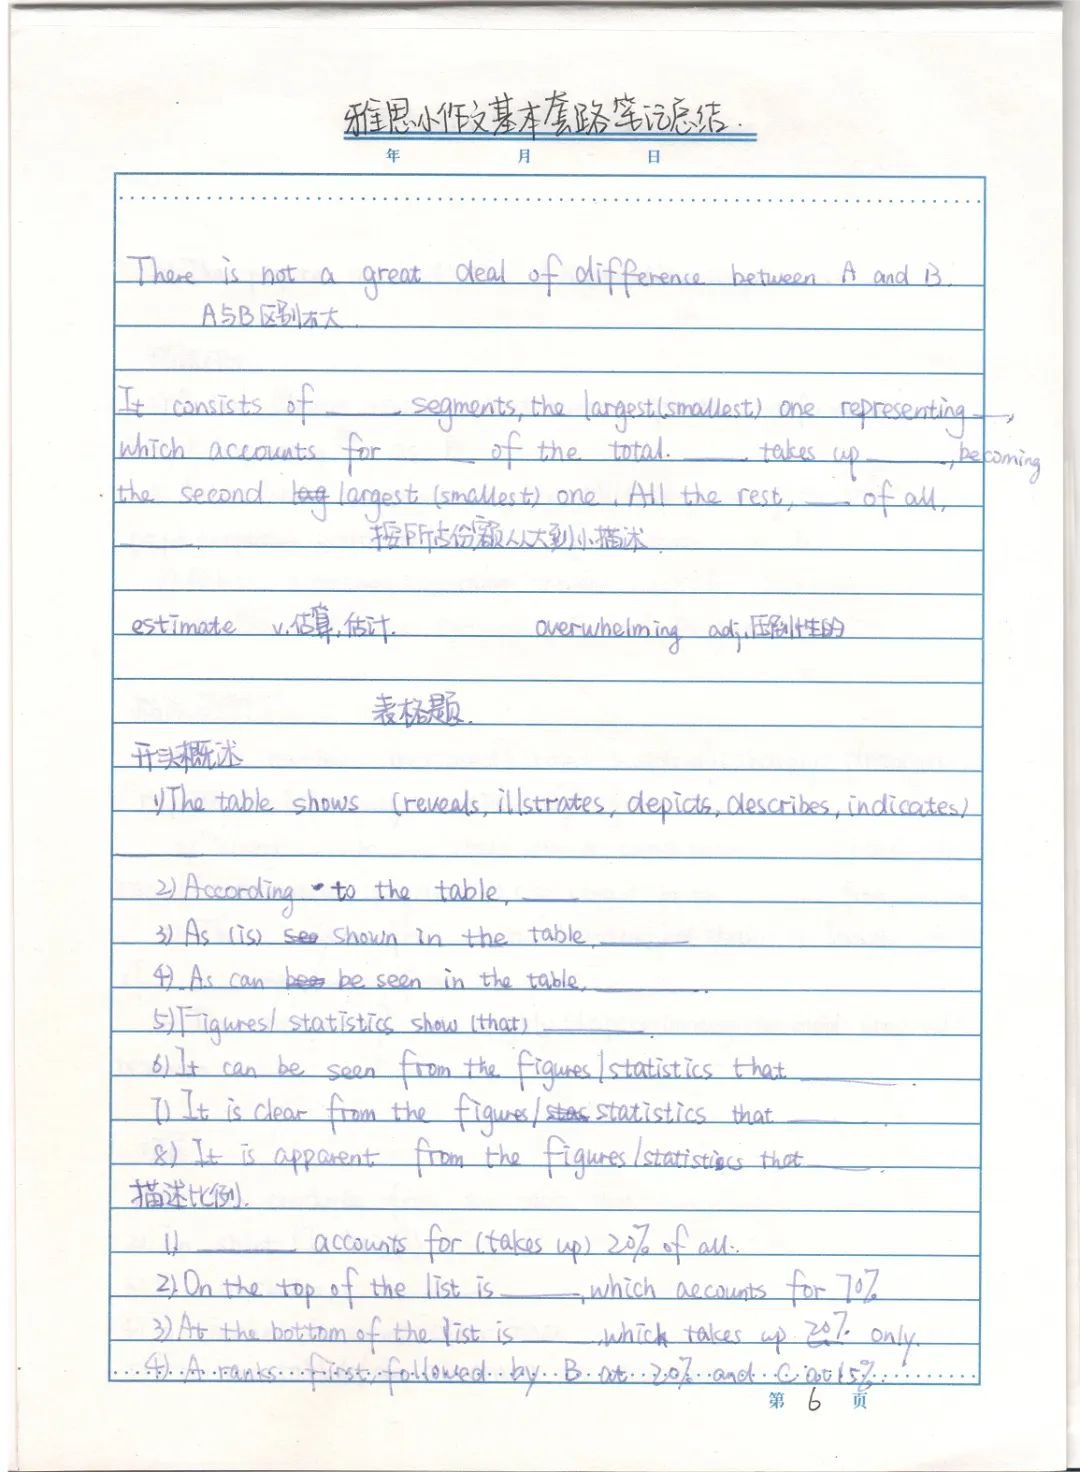 雅思小作文基本套路笔记总结.
年 月 日
There is not a great deal of difference between A and B.
A与B区别不大.
It consists of ____ segments, the largest(smallest) one representing ____,
which accounts for ____ of the total. ____ takes up ____, becoming
the second largest (smallest) one. All the rest, ____ of all,
____. 按所占份额从大到小描述.
estimate v.估算,估计. overwhelming adj.压倒性的
表格题.
开头概述
1)The table shows (reveals, illstrates, depicts, describes, indicates)
____
2) According to the table, ____
3) As (is) shown in the table, ____
4) As can be seen in the table, ____.
5)Figures/ statistics show (that) ____.
6) It can be seen from the figures/statistics that ____.
7) It is clear from the figures/statistics that ____.
8) It is apparent from the figures/statistics that ____.
描述比例.
1) ____ accounts for (takes up) 20% of all.
2) On the top of the list is ____, which accounts for 70%
3) At the bottom of the list is ____, which takes up 20% only.
4) A ranks first, followed by B at 20% and C at 15%.
第 6 页